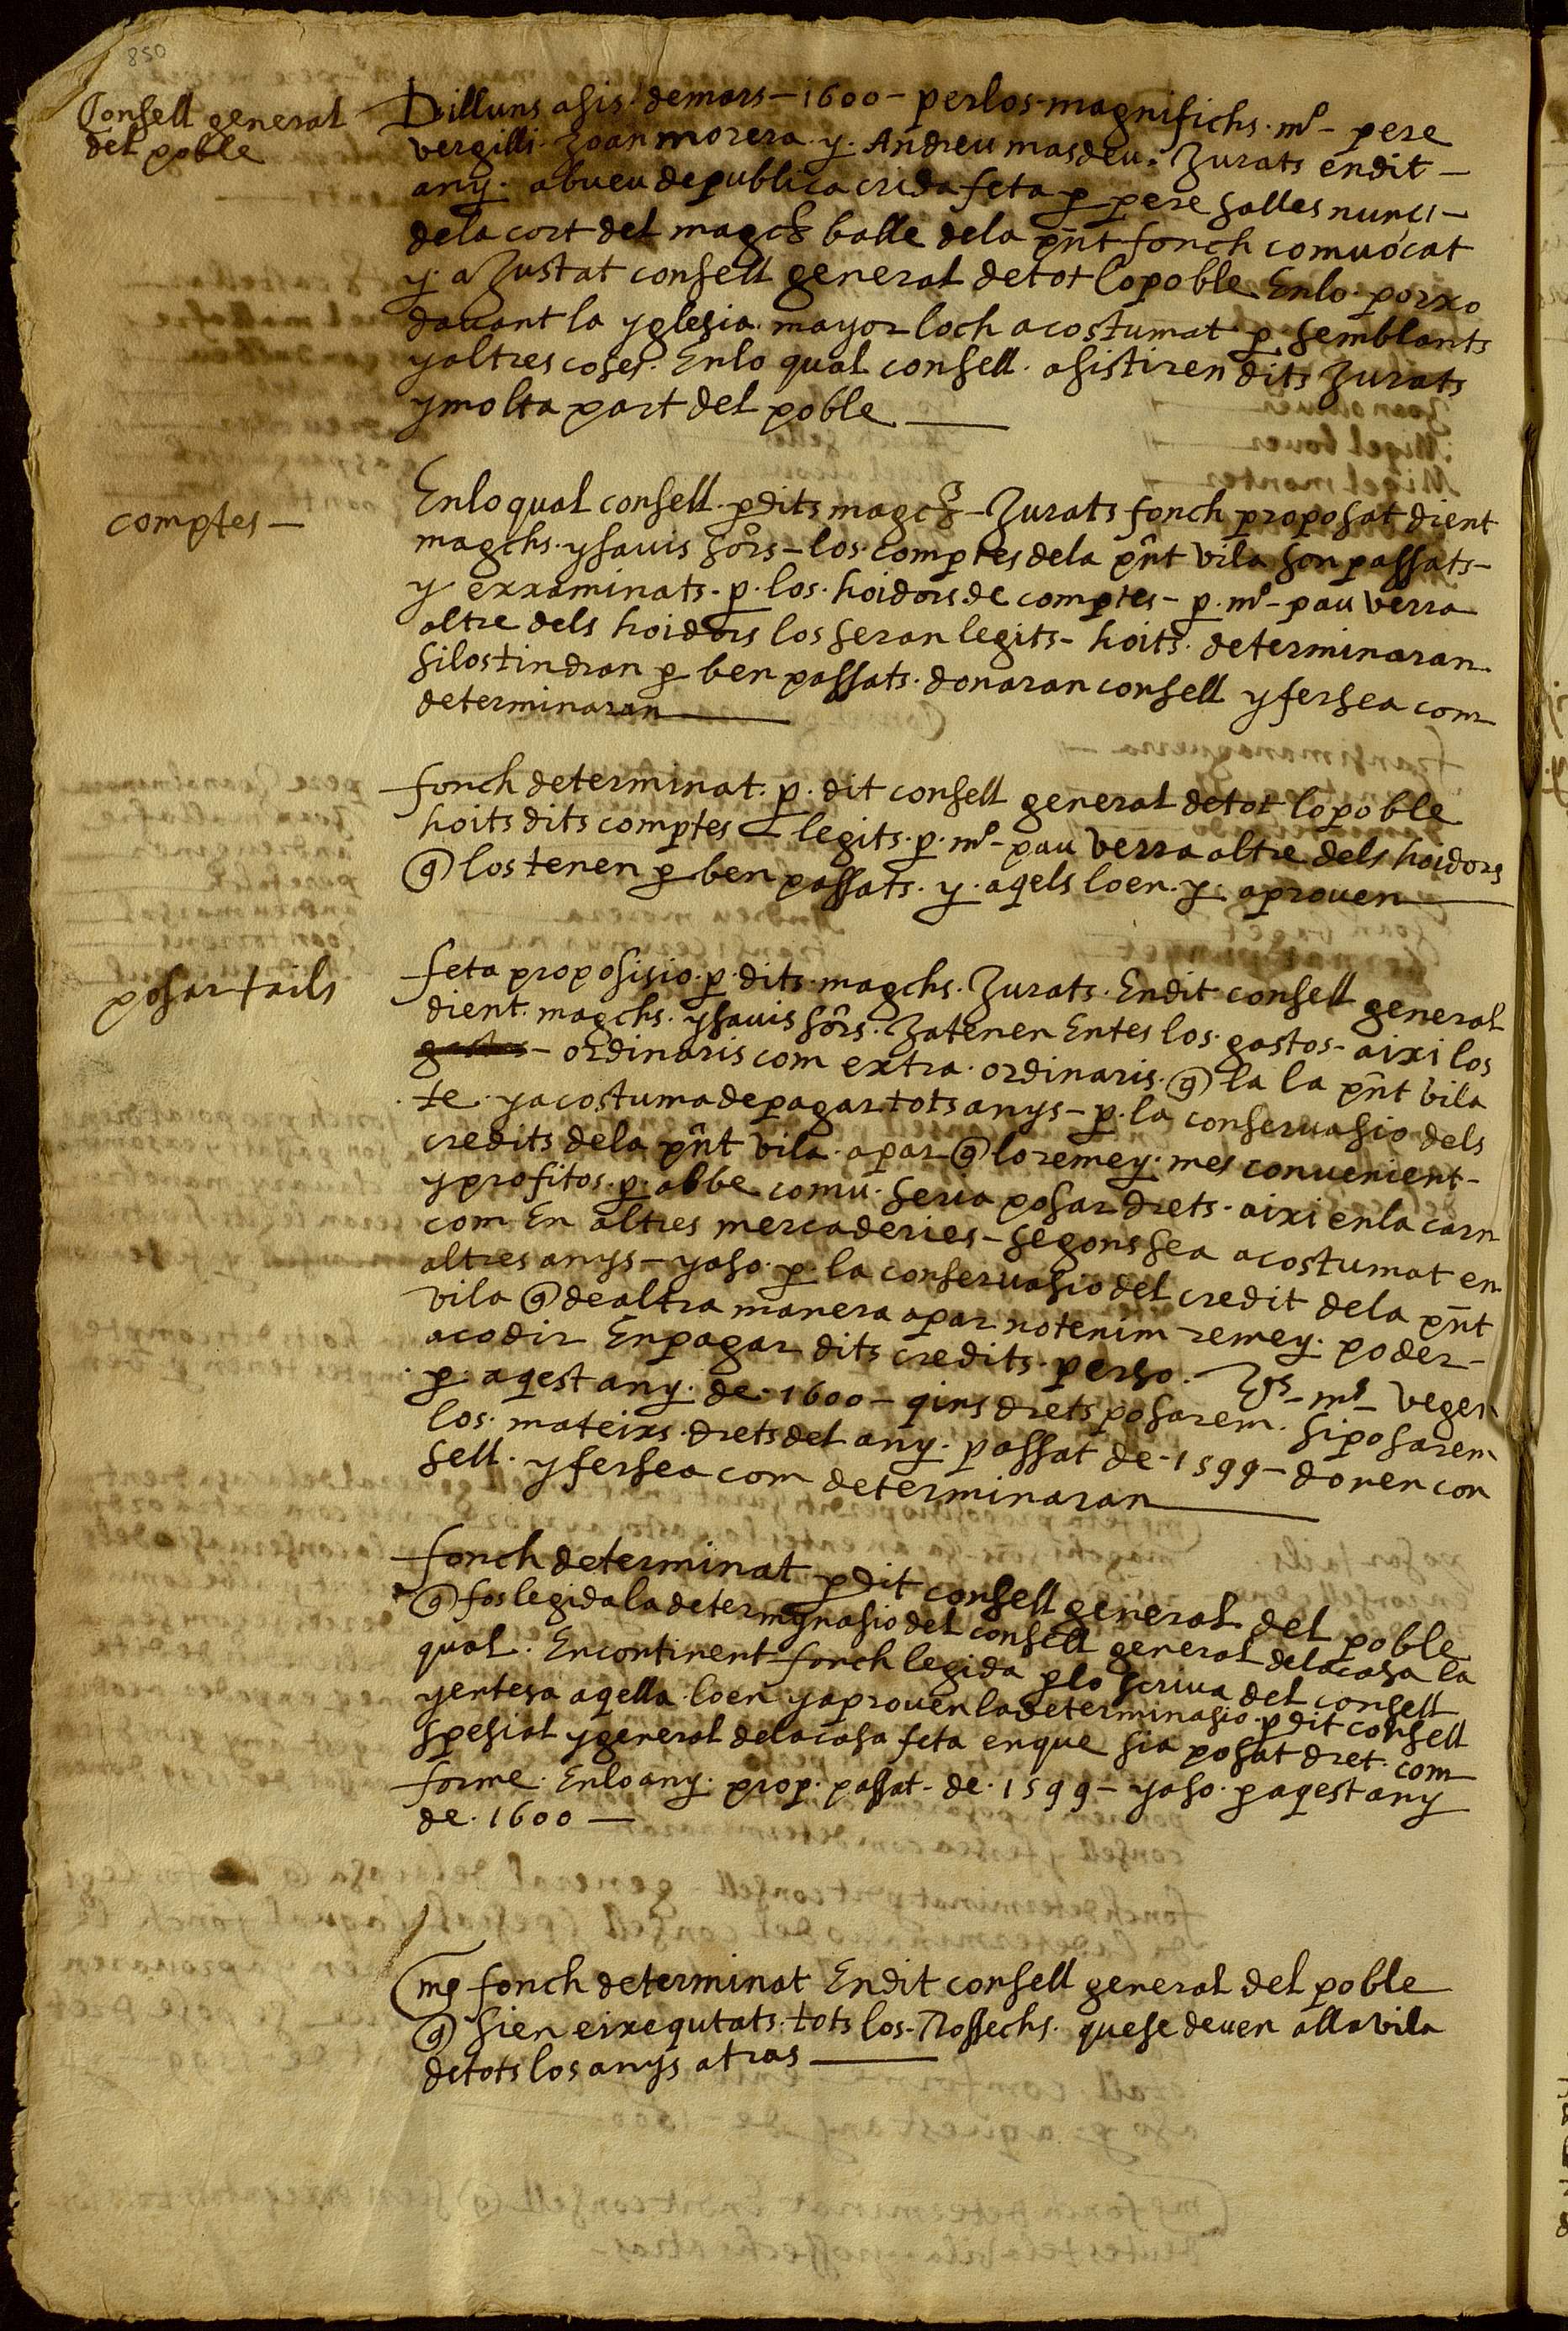 850
Consell general
del poble
Dilluns asis. demars – 1600 – perlos magnifichs. mº – pere
vergilli. Joan morera. y. Andreu masdeu. Jurats endit –
any. abueu depublica crida feta p pere salles nunci –
dela cort del magch balle dela pñt fonch comuocat
y aJustat consell general detot lopoble. Enlo porxo
dauant la yglesia mayor loch acostumat p semblants
yaltres coses. Enlo qual consell. asistiren dits Jurats
ymolta part del poble
comptes –
Enloqual consell. pdits magchs – Jurats fonch proposat dient
magchs. ysauis sors – los. comptes dela pñt vila son passats –
y exxaminats. p. los. hoidors. de comptes – p. mº – pau verra
altre dels hoidors los seran legits – hoits. determinaran.
silostindran p ben passats. donaran consell yfersea com
determinaran
fonch determinat. p. dit consell general detot lopoble
hoits dits comptes – legits. p. mº – pau verra altre dels hoidors
q los tenen p ben passats. y. aqels loen. y. aprouen
posar tails
feta proposisio. p. dits. magchs. Jurats. Endit consell general
dient. magchs. ysauis sors. Jatenen Entes los. gastos – aixi los
gastos – ordinaris com extra. ordinaris. q la la pñt vila
te. yacostuma depagar tots anys – p. la conseruasio dels
credits dela pñt vila. apar q lo remey. mes conuenient –
yprofitos. p. abbe comu. seria posar drets. aixi enla carn
com En altres mercaderies – segons sea acostumat en
altres anys – yaso. p. la conseruasio del credit dela pñt
vila q dealtra manera apar notenim remey. poder –
acodir Enpagar dits credits. perso. – vs – ms – vegen
p. aqest any. de. 1600 – qins drets posarem. siposarem
los. mateixs. drets del any. passat de. 1599 – donen con
sell. yfersea com determinaran
fonch determinat pdit consell general del poble
q fos legida la determynasio del consell general delacasa la
qual. Encontinent fonch legida plo scriua del consell
yentesa aqella. loen yaprouen ladeterminasio. pdit consell
spesial ygeneral delacasa feta enque sia posat dret. com
forme. Enlo any. prop. passat. de. 1599 – yaso. p aqest any
de. 1600 –
mes fonch determinat Endit consell general del poble
q sien eixequtats. tots los. Rossechs. quese deuen alla vila
detots los anys atras